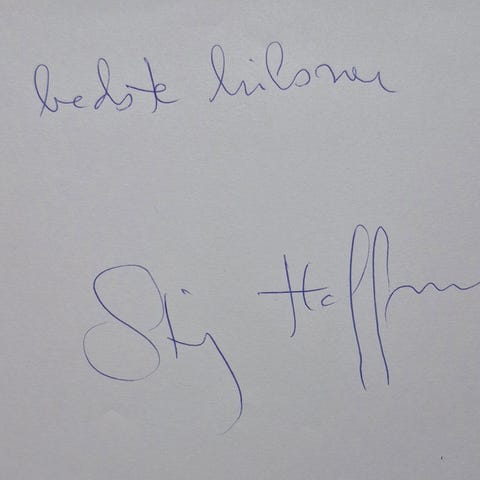 bedste hilsner
Stig Hoffm